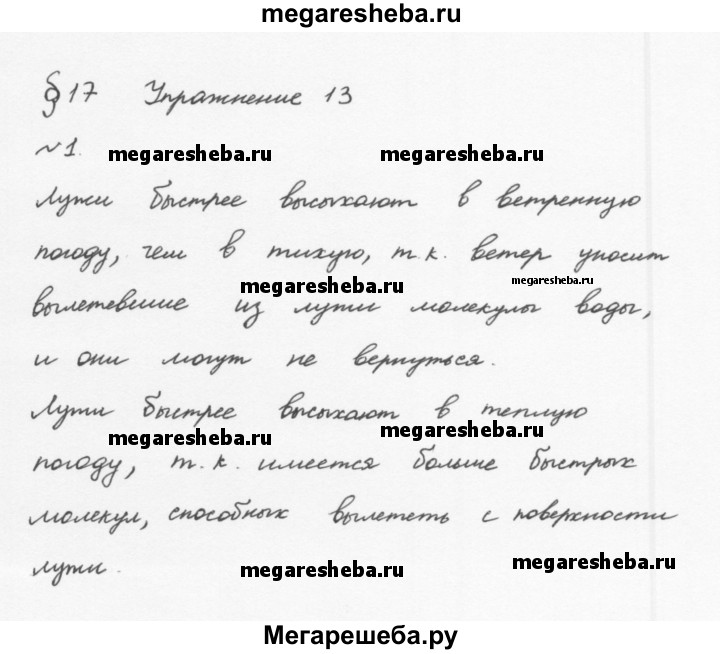 megaresheba.ru
§17 Упражнение 13
№1.
megaresheba.ru megaresheba.ru
Лужи быстрее высыхают в ветренную
погоду, чем в тихую, т.к. ветер уносит
megaresheba.ru megaresheba.ru
вылетевшие из лужи молекулы воды,
и они могут не вернуться.
Лужи быстрее высыхают в теплую
megaresheba.ru megaresheba.ru
погоду, т.к. имеется больше быстрых
молекул, способных вылететь с поверхности
лужи.
megaresheba.ru megaresheba.ru
Мегарешеба.ру